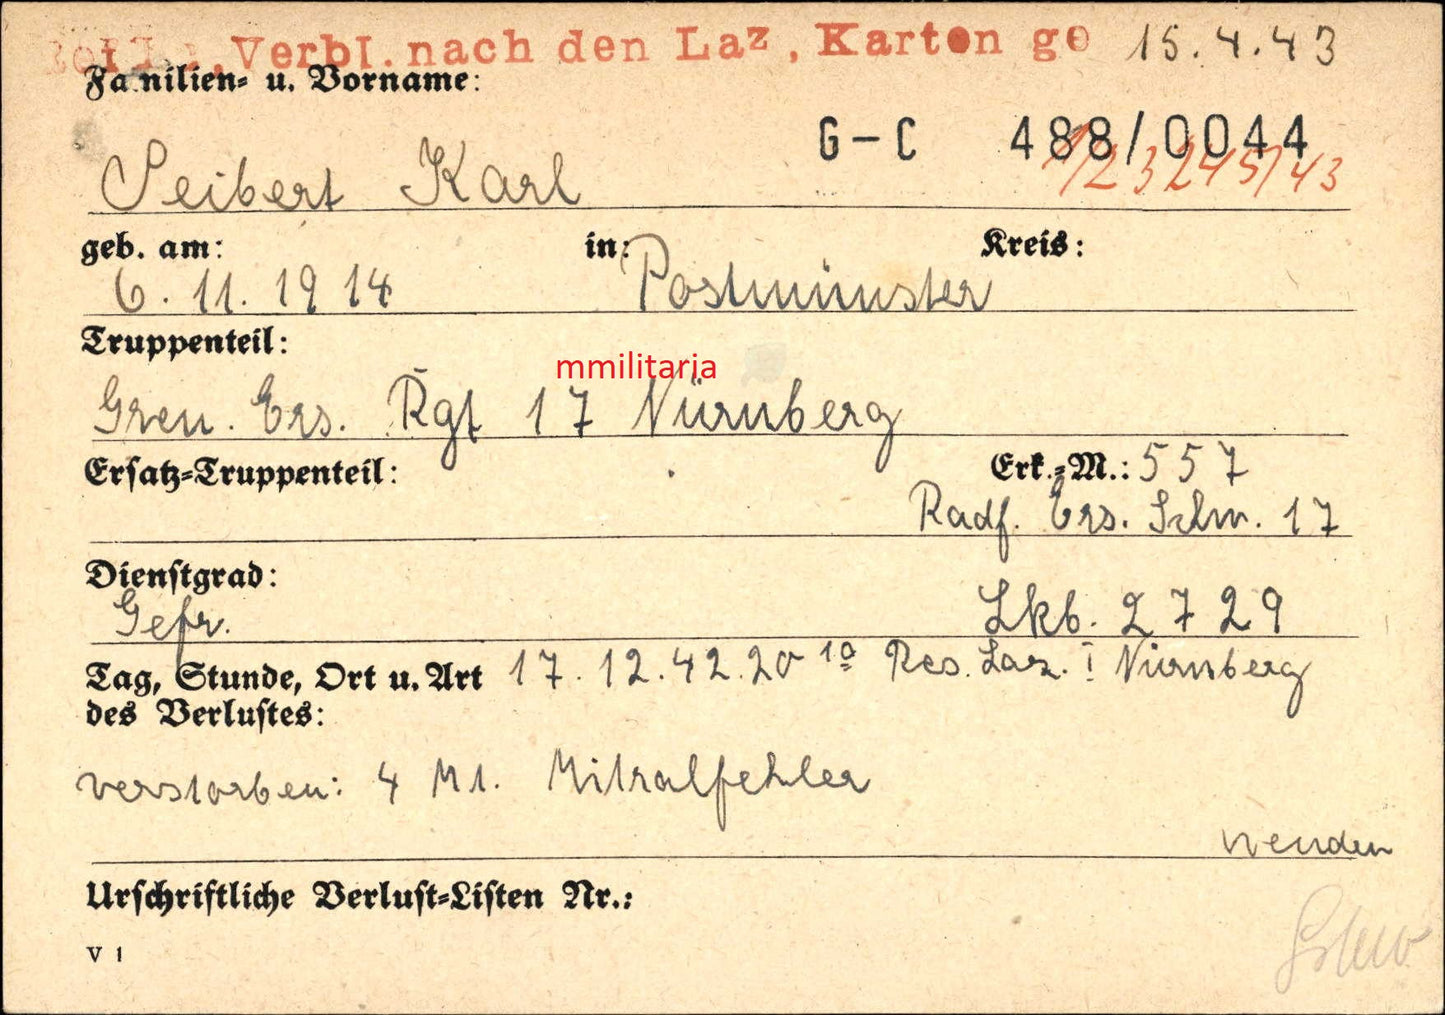 Verbl. nach den Laz, Karton ge 15.4.43
Familien- u. Vorname:
G-C 488/0044
Seibert Karl
geb. am: in: Kreis:
6. 11. 1914 Postmünster
Truppenteil:
mmilitaria
Gren. Ers. Rgt 17 Nürnberg
Ersatz-Truppenteil: Erk.-M.: 557
Radf. Ers. Schw. 17
Dienstgrad:
Gefr. Lkb. 2729
Tag, Stunde, Ort u. Art 17. 12. 42. 20 10 Res. Laz. I Nürnberg
des Verlustes:
verstorben: 4 M1. Mitralfehler
wenden
Urschriftliche Verlust-Listen Nr.:
V 1